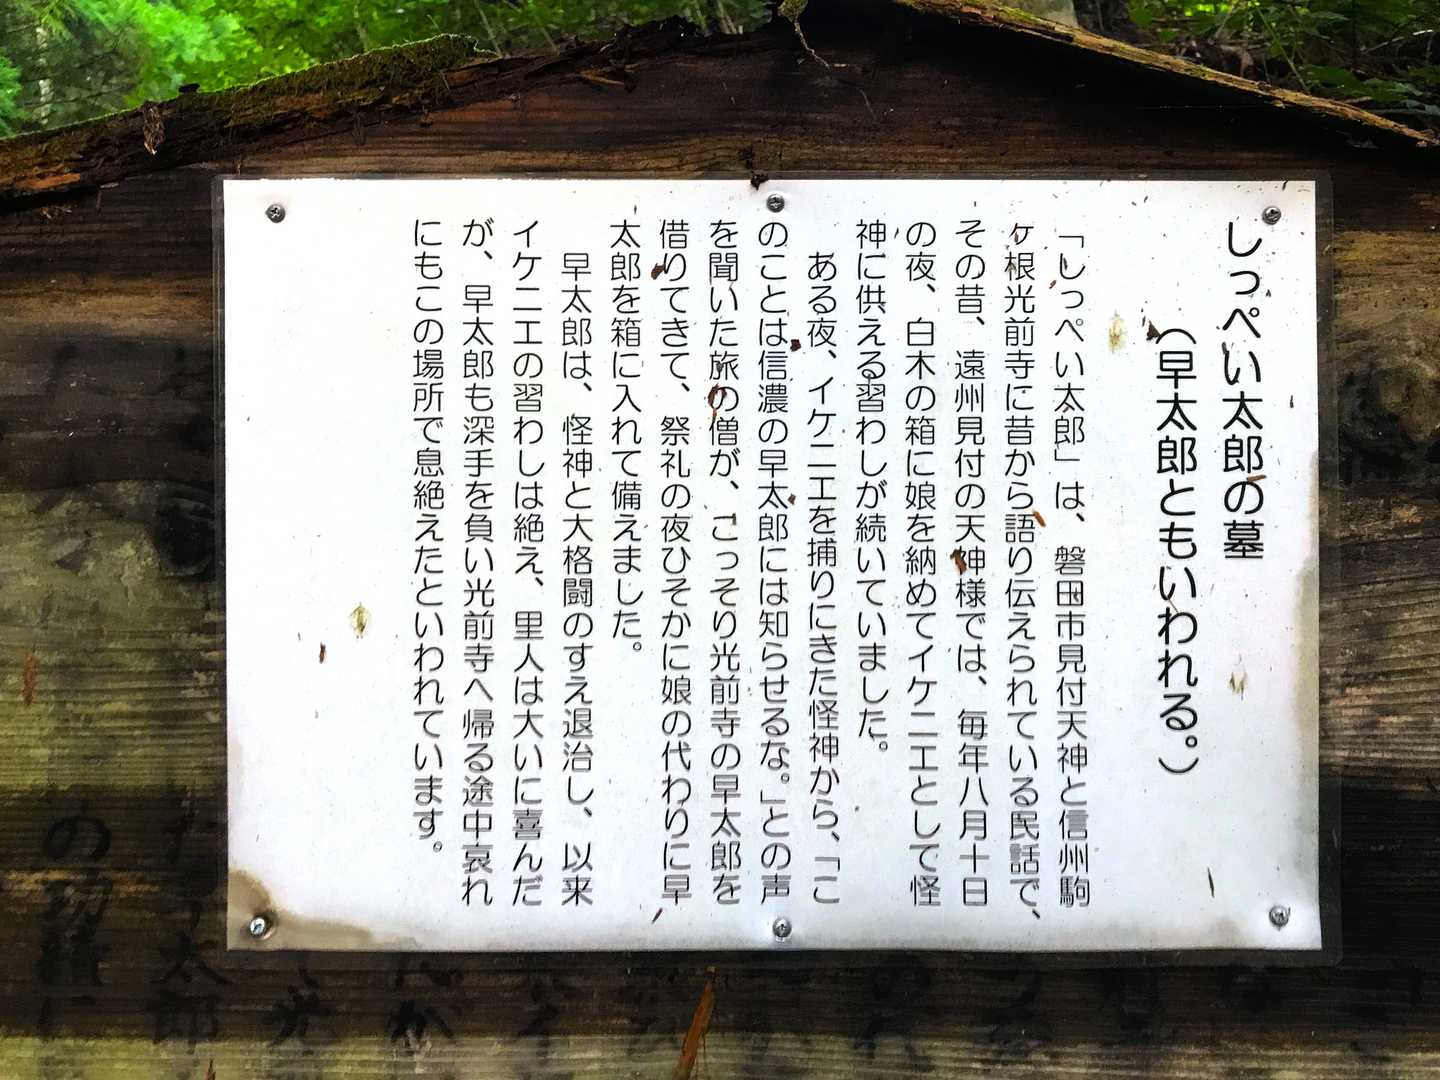 しっぺい太郎の墓
（早太郎ともいわれる。）
「しっぺい太郎」は、磐田市見付天神と信州駒
ヶ根光前寺に昔から語り伝えられている民話で、
その昔、遠州見付の天神様では、毎年八月十日
の夜、白木の箱に娘を納めてイケニエとして怪
神に供える習わしが続いていました。
ある夜、イケニエを捕りにきた怪神から、「こ
のことは信濃の早太郎には知らせるな。」との声
を聞いた旅の僧が、こっそり光前寺の早太郎を
借りてきて、祭礼の夜ひそかに娘の代わりに早
太郎を箱に入れて備えました。
早太郎は、怪神と大格闘のすえ退治し、以来
イケニエの習わしは絶え、里人は大いに喜んだ
が、早太郎も深手を負い光前寺へ帰る途中哀れ
にもこの場所で息絶えたといわれています。